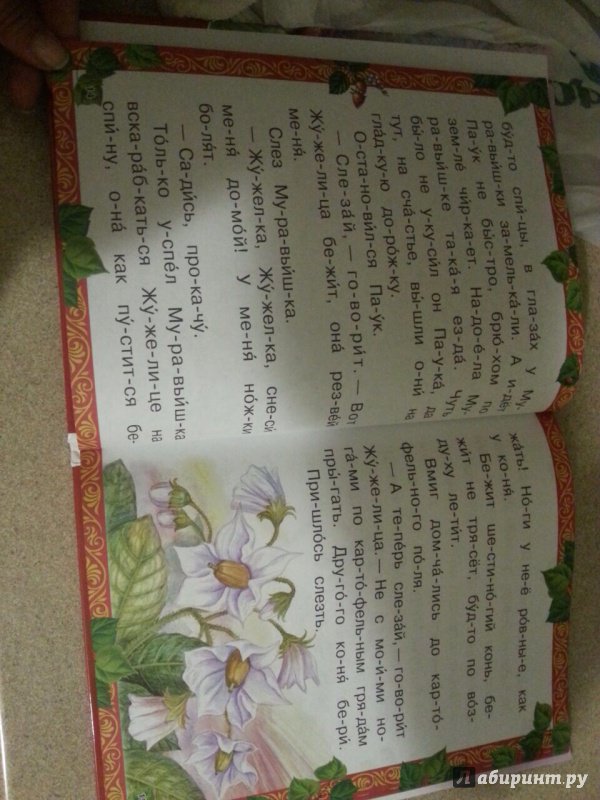 бу́д-то спи́-цы, в гла-за́х у Му-
ра-вьи́ш-ки за-мель-ка́-ли. А и-дёт
Па-у́к не бы́с-тро, брю́-хом по
зем-ле́ чи́р-ка-ет. На-до-е́-ла Му-
ра-вьи́ш-ке та-ка́-я ез-да́. Чуть
бы́-ло не у-ку-си́л он Па-у-ка́, да
тут, на сча́-стье, вы́-шли о-ни́ на
гла́д-ку-ю до-ро́ж-ку.
О-ста-но-ви́л-ся Па-у́к.
— Сле-за́й, — го-во-ри́т. — Вот
Жу́-же-ли-ца бе-жи́т, она́ рез-ве́й
ме-ня́.
Слез Му-ра-вьи́ш-ка.
— Жу́-жел-ка, Жу́-жел-ка, сне-си́
ме-ня́ до-мо́й! У ме-ня́ но́ж-ки
бо-ля́т.
— Са-ди́сь, про-ка-чу́.
То́ль-ко у-спе́л Му-ра-вьи́ш-ка
вска-ра́б-кать-ся Жу́-же-ли-це на
спи́-ну, о-на́ как пу́-стит-ся бе-
жа́ть! Но́-ги у не-ё ро́в-ны-е, как
у ко-ня́.
Бе-жи́т ше-сти-но́-гий конь, бе-
жи́т не тря-сёт, бу́д-то по во́з-
ду-ху ле-ти́т.
Вмиг дом-ча́-лись до кар-то́-
фель-но-го по́-ля.
— А те-пе́рь сле-за́й, — го-во-ри́т
Жу́-же-ли-ца. — Не с мо-и́-ми но-
га́-ми по кар-то́-фель-ным гря-да́м
пры́-гать. Дру-го́-го ко-ня́ бе-ри́.
При-шло́сь слезть.
Лабиринт.ру